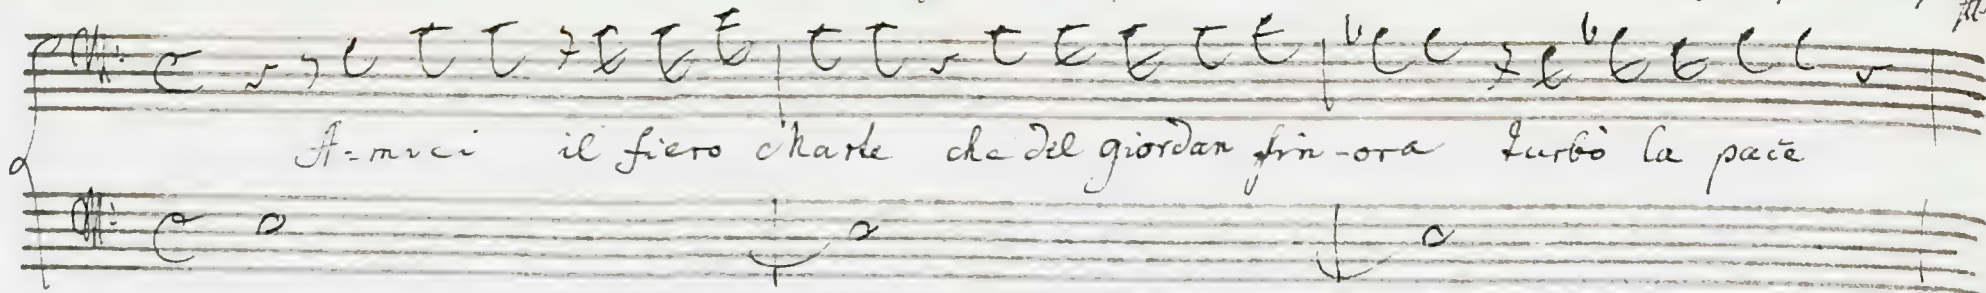 A-mici il fiero Marte che del giordan fin-ora turbò la pace